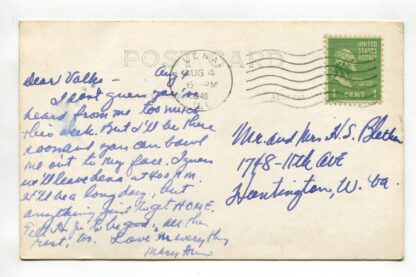 POST CARD
LENA
AUG 4
6 PM
1948
ILL.
UNITED STATES POSTAGE
1 CENT 1
Dear Folks – Aug
I don't guess you
heard from me too much
this week. But I'll be there
soon and you can bawl
me out to my face. I guess
we'll leave Lena at 4:00 A.M.
It'll be a long day, but
anything just to get HOME.
Tell to be good, all the
rest, too. Love me everything
Mary Ann
Mr. and Mrs. H.S.
1748-11th Ave
Huntington, W. Va.